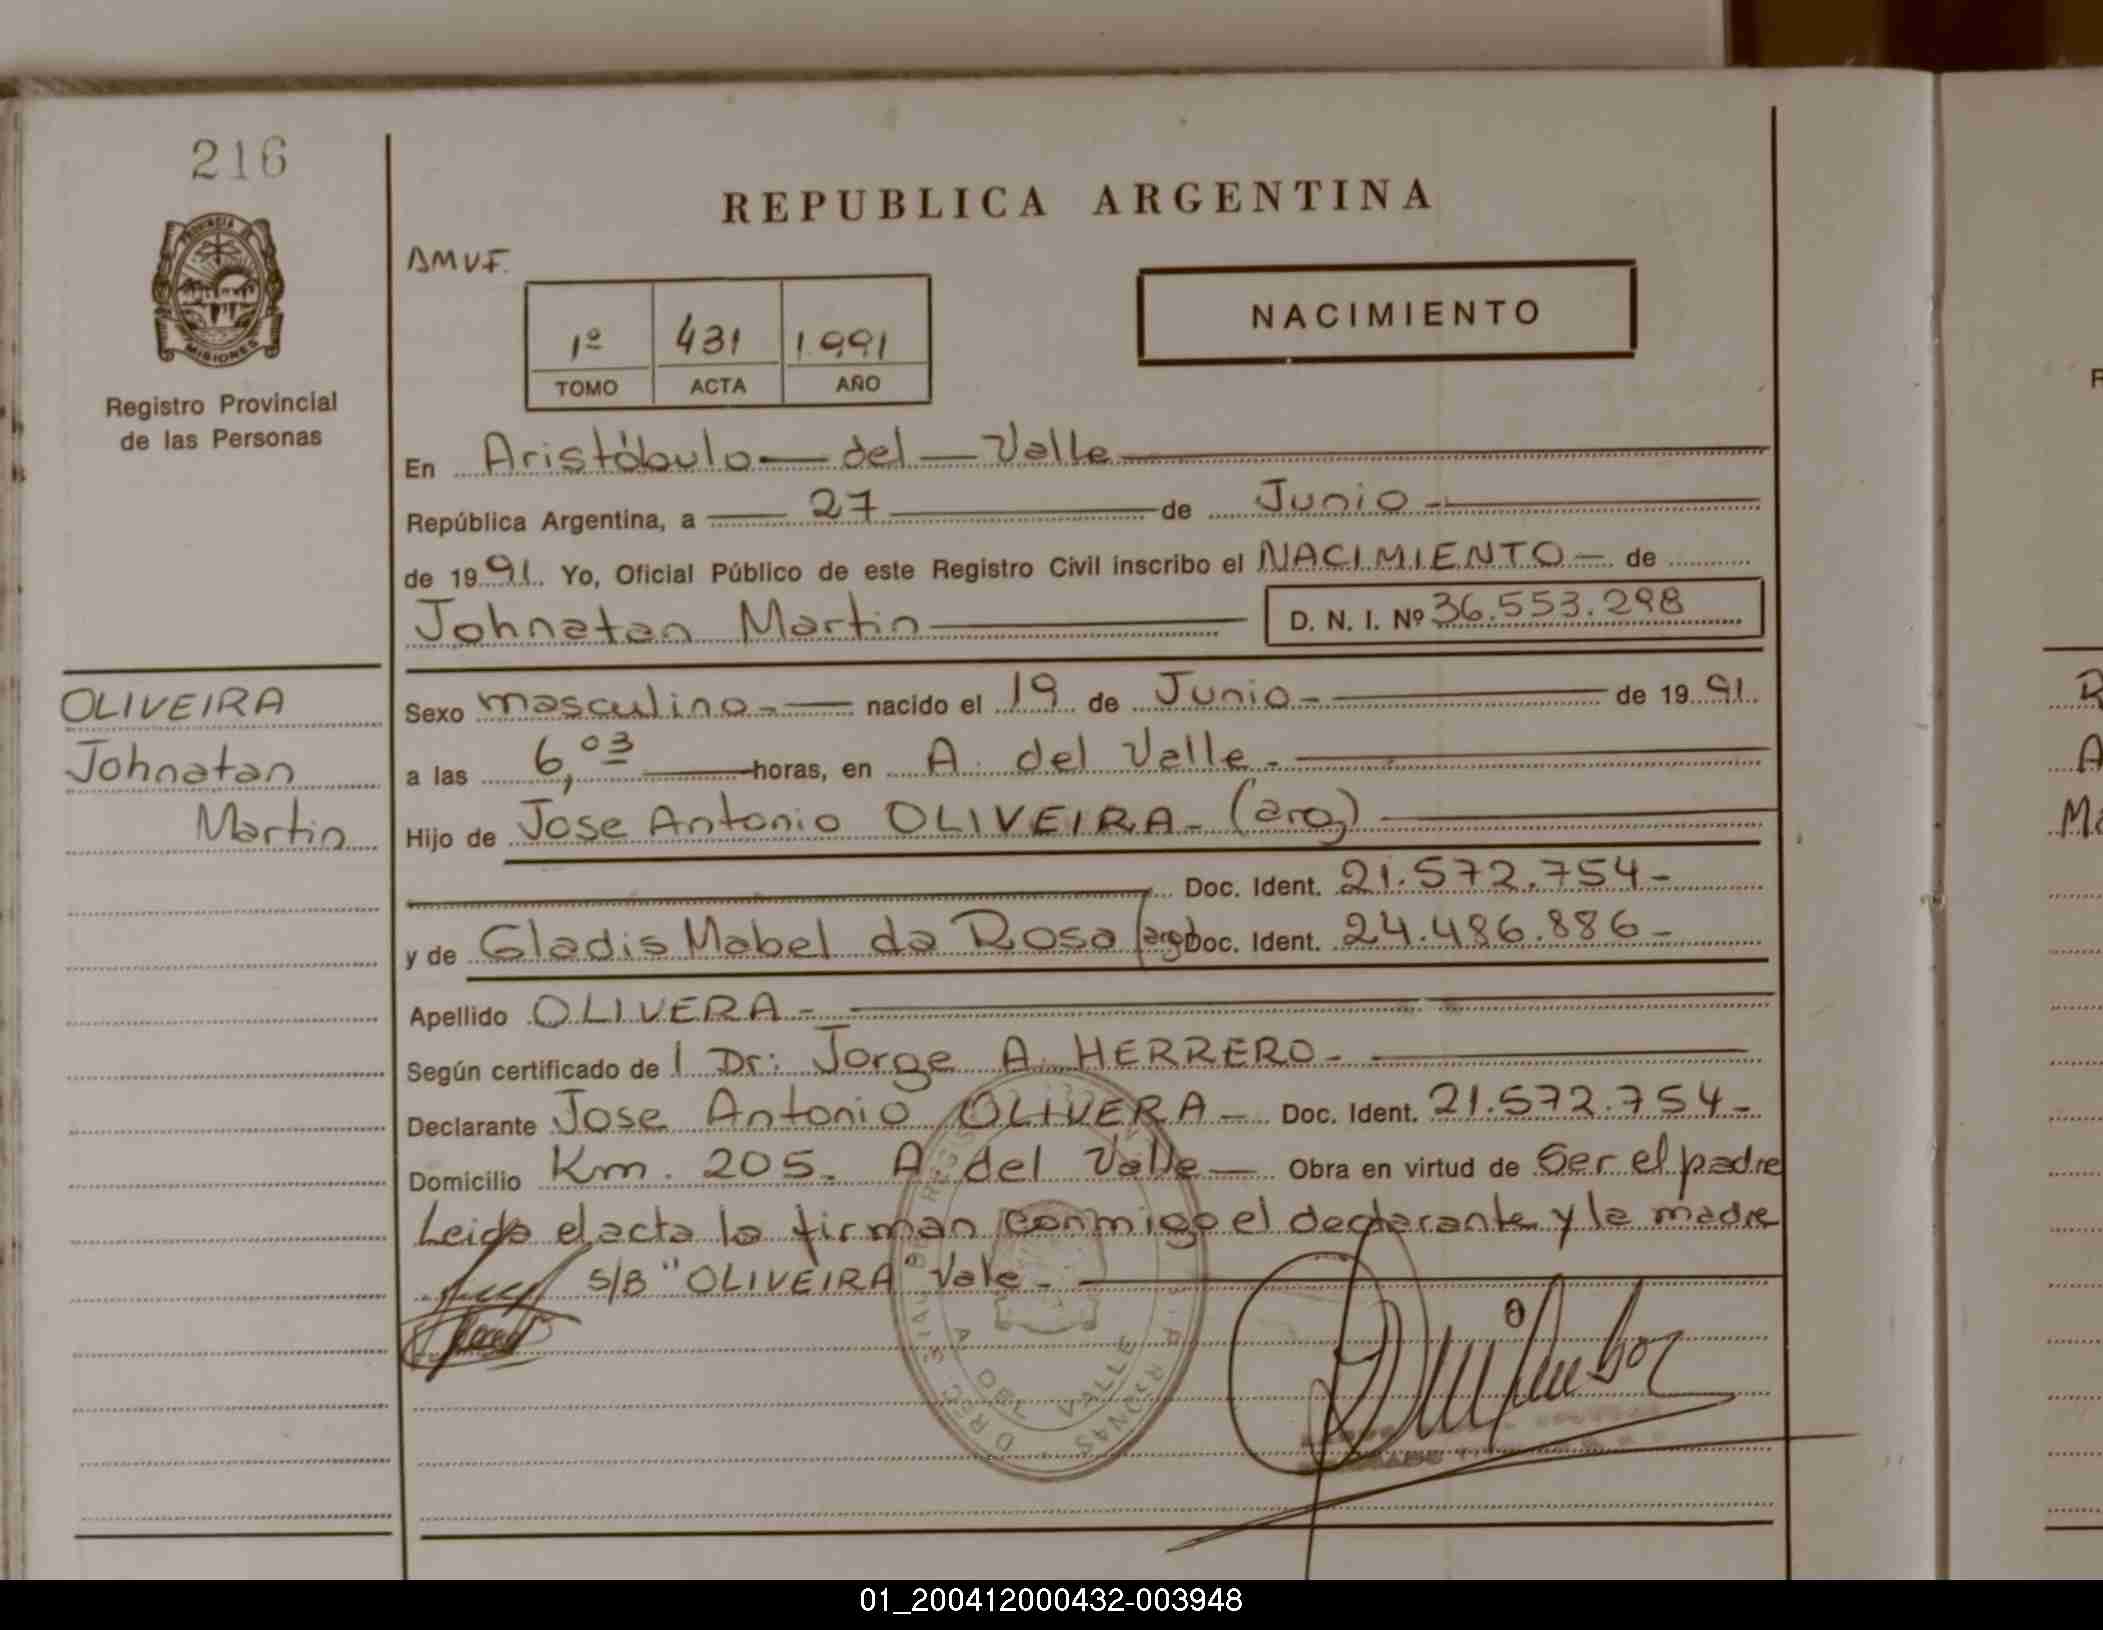 216
PROVINCIA
MISIONES
Registro Provincial
de las Personas
OLIVEIRA
Johnatan
Martin
REPUBLICA ARGENTINA
AMVF.
1º 431 1991
TOMO ACTA AÑO
NACIMIENTO
En Aristóbulo del Valle
República Argentina, a 27 de Junio
de 1991. Yo, Oficial Público de este Registro Civil inscribo el NACIMIENTO de
Johnatan Martin D. N. I. Nº 36.553.298
Sexo masculino nacido el 19 de Junio de 1991.
a las 6,03 horas, en A. del Valle.
Hijo de Jose Antonio OLIVEIRA (arg)
Doc. Ident. 21.572.754
y de Gladis Mabel da Rosa (arg) Doc. Ident. 24.486.886
Apellido OLIVERA
Según certificado de l Dr: Jorge A. HERRERO
Declarante Jose Antonio OLIVERA Doc. Ident. 21.572.754
Domicilio Km. 205. A del Valle Obra en virtud de Ser el padre
Leida el acta la firman conmigo el declarante y la madre
S/B "OLIVEIRA" Vale.
VALLE
01_200412000432-003948